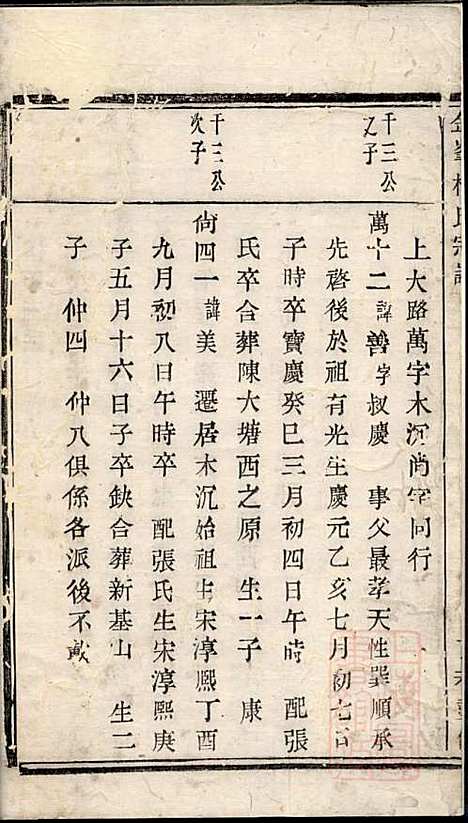 上大路萬字木沉尚字同行
千三公之子
萬十二諱善字叔慶 事父最孝天性巽順承
先啓後於祖有光生慶元乙亥七月初七日
子時卒寶慶癸巳三月初四日午時 配張
氏卒合葬陳大塘西之原 生一子 康
千三公次子
尚四一諱美 遷居木沉始祖生宋淳熙丁酉
九月初八日午時卒 配張氏生宋淳熙庚
子五月十六日子卒缺合葬新基山 生二
子 仲四 仲八俱係各派後不載